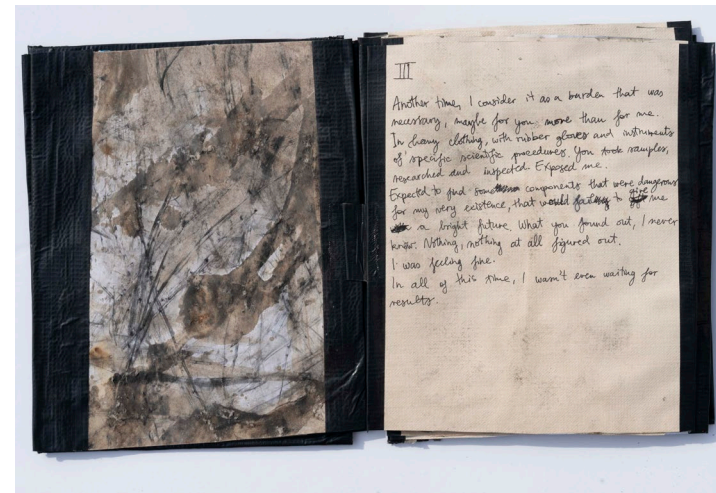 III
Another time, I consider it as a burden that was
necessary, maybe for you more than for me.
In heavy clothing, with rubber gloves and instruments
of specific scientific procedures. You took samples,
researched and inspected. Exposed me.
Expected to find some components that were dangerous
for my very existence, that would to give me
a bright future. What you found out, I never
know. Nothing, nothing at all figured out.
I was feeling fine.
In all of this time, I wasn't even waiting for
results.